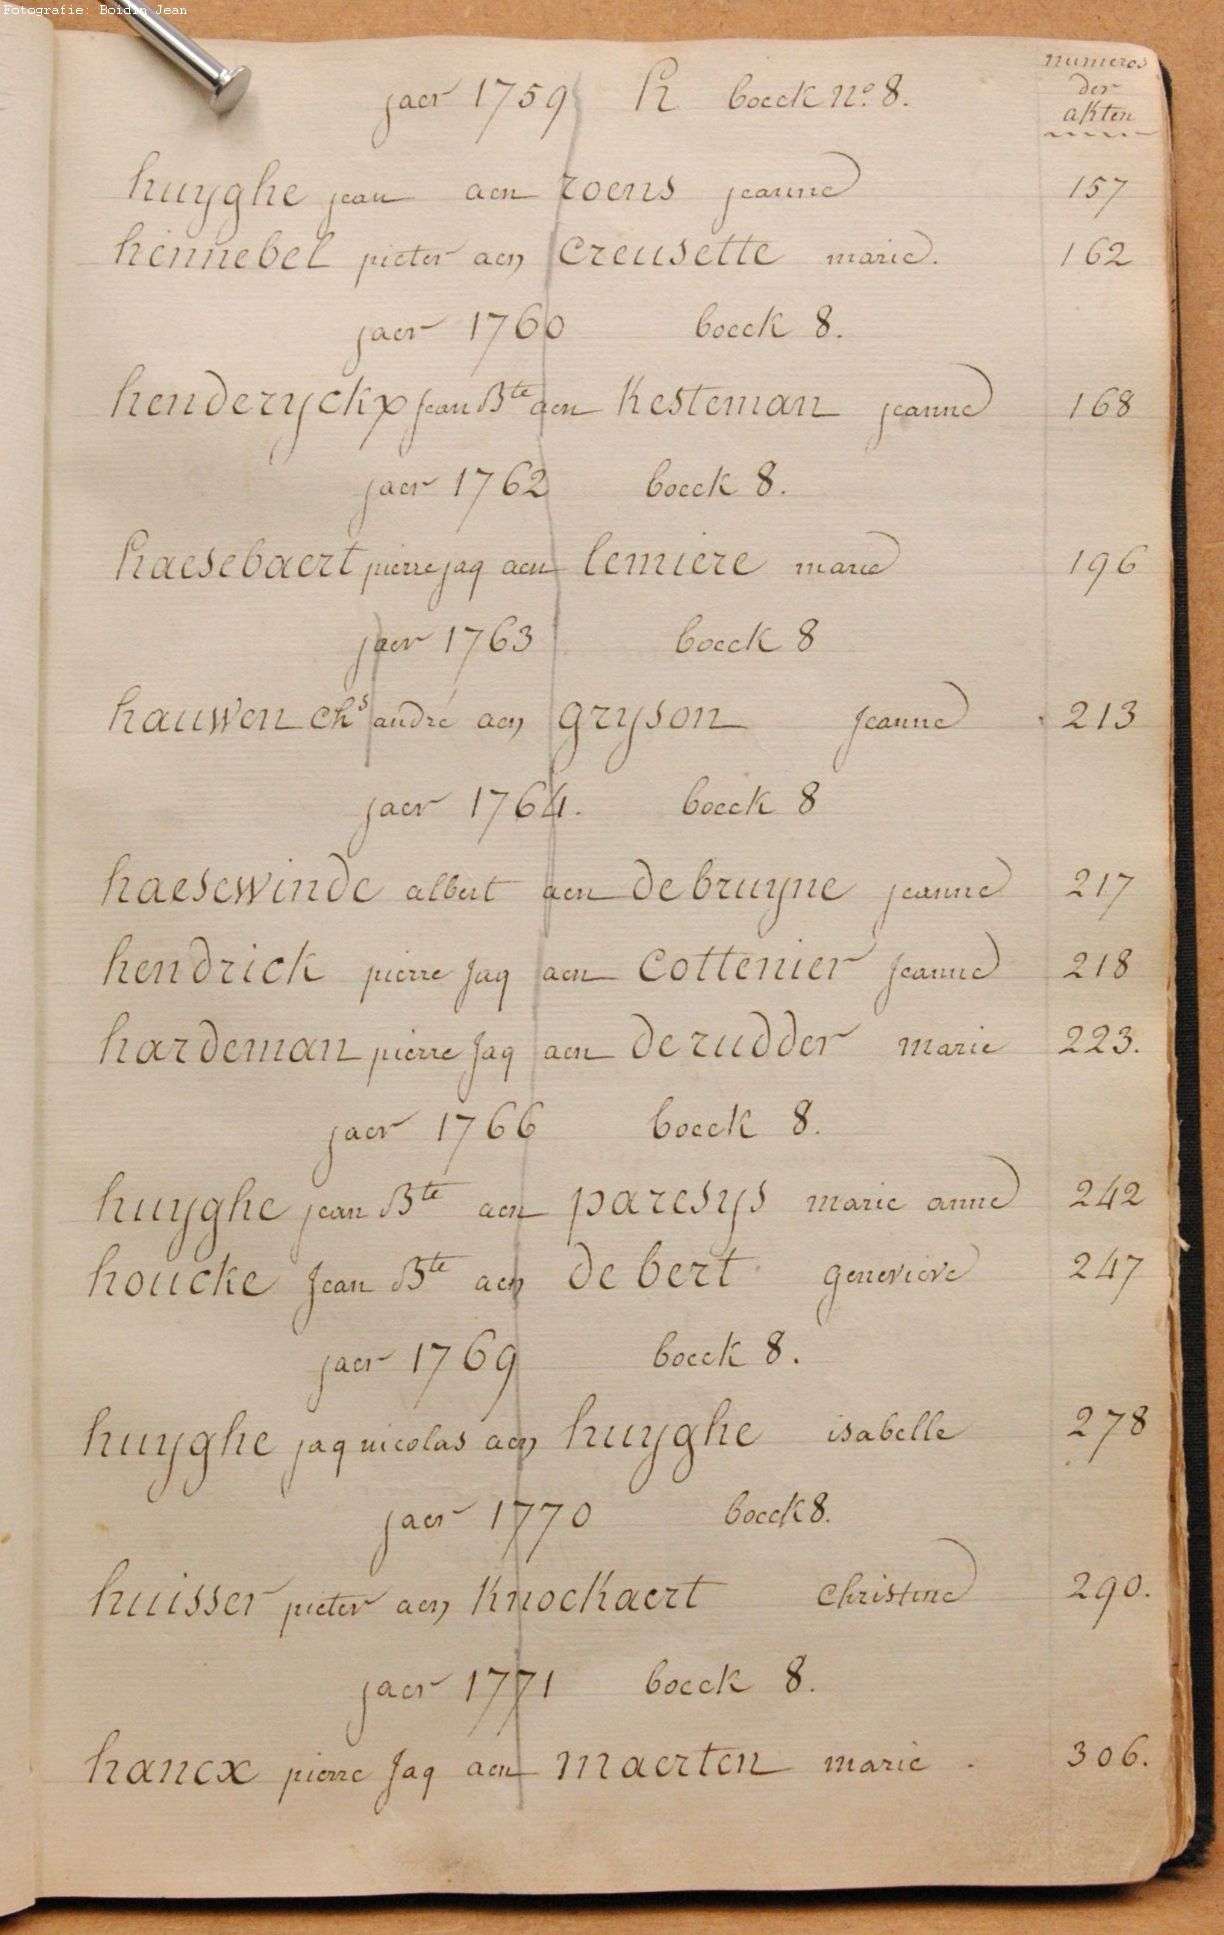 Fotografie: Boidin Jean
numeros
der
akten
jaer 1759 h boeck n:o 8.
huyghe jean aen roens jeanne 157
hennebel pieter aen creusette marie. 162
jaer 1760 boeck 8.
henderyckx Jean Bte aen Kesteman jeanne 168
jaer 1762 boeck 8.
haesebaert pierre jaq aen lemiere marie 196
jaer 1763 boeck 8
hauwen chs andré aen gryson Jeanne 213
jaer 1764. boeck 8
haesewinde albert aen de bruyne jeanne 217
hendrick pierre Jaq aen cottenier Jeanne 218
hardeman pierre Jaq aen de rudder marie 223.
jaer 1766 boeck 8.
huyghe jean Bte aen paresys marie anne 242
houcke Jean Bte aen de bert genevieve 247
jaer 1769 boeck 8.
huyghe jaq nicolas aen huyghe isabelle 278
jaer 1770 boeck 8.
huisser pieter aen Knockaert christine 290.
jaer 1771 boeck 8.
hancx pierre Jaq aen maerten marie . 306.